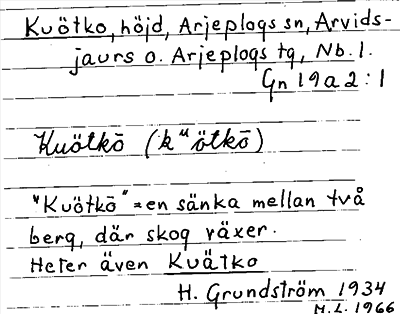 Kuötko, höjd, Arjeplogs sn, Arvids-
jaurs o. Arjeplogs tg, Nb. l.
Gn 19a2:1
Kuötkō (kᵘötkō)
"Kuötkō" = en sänka mellan två
berg, där skog växer.
Heter även Kuätko
H. Grundström 1934
M.L. 1966